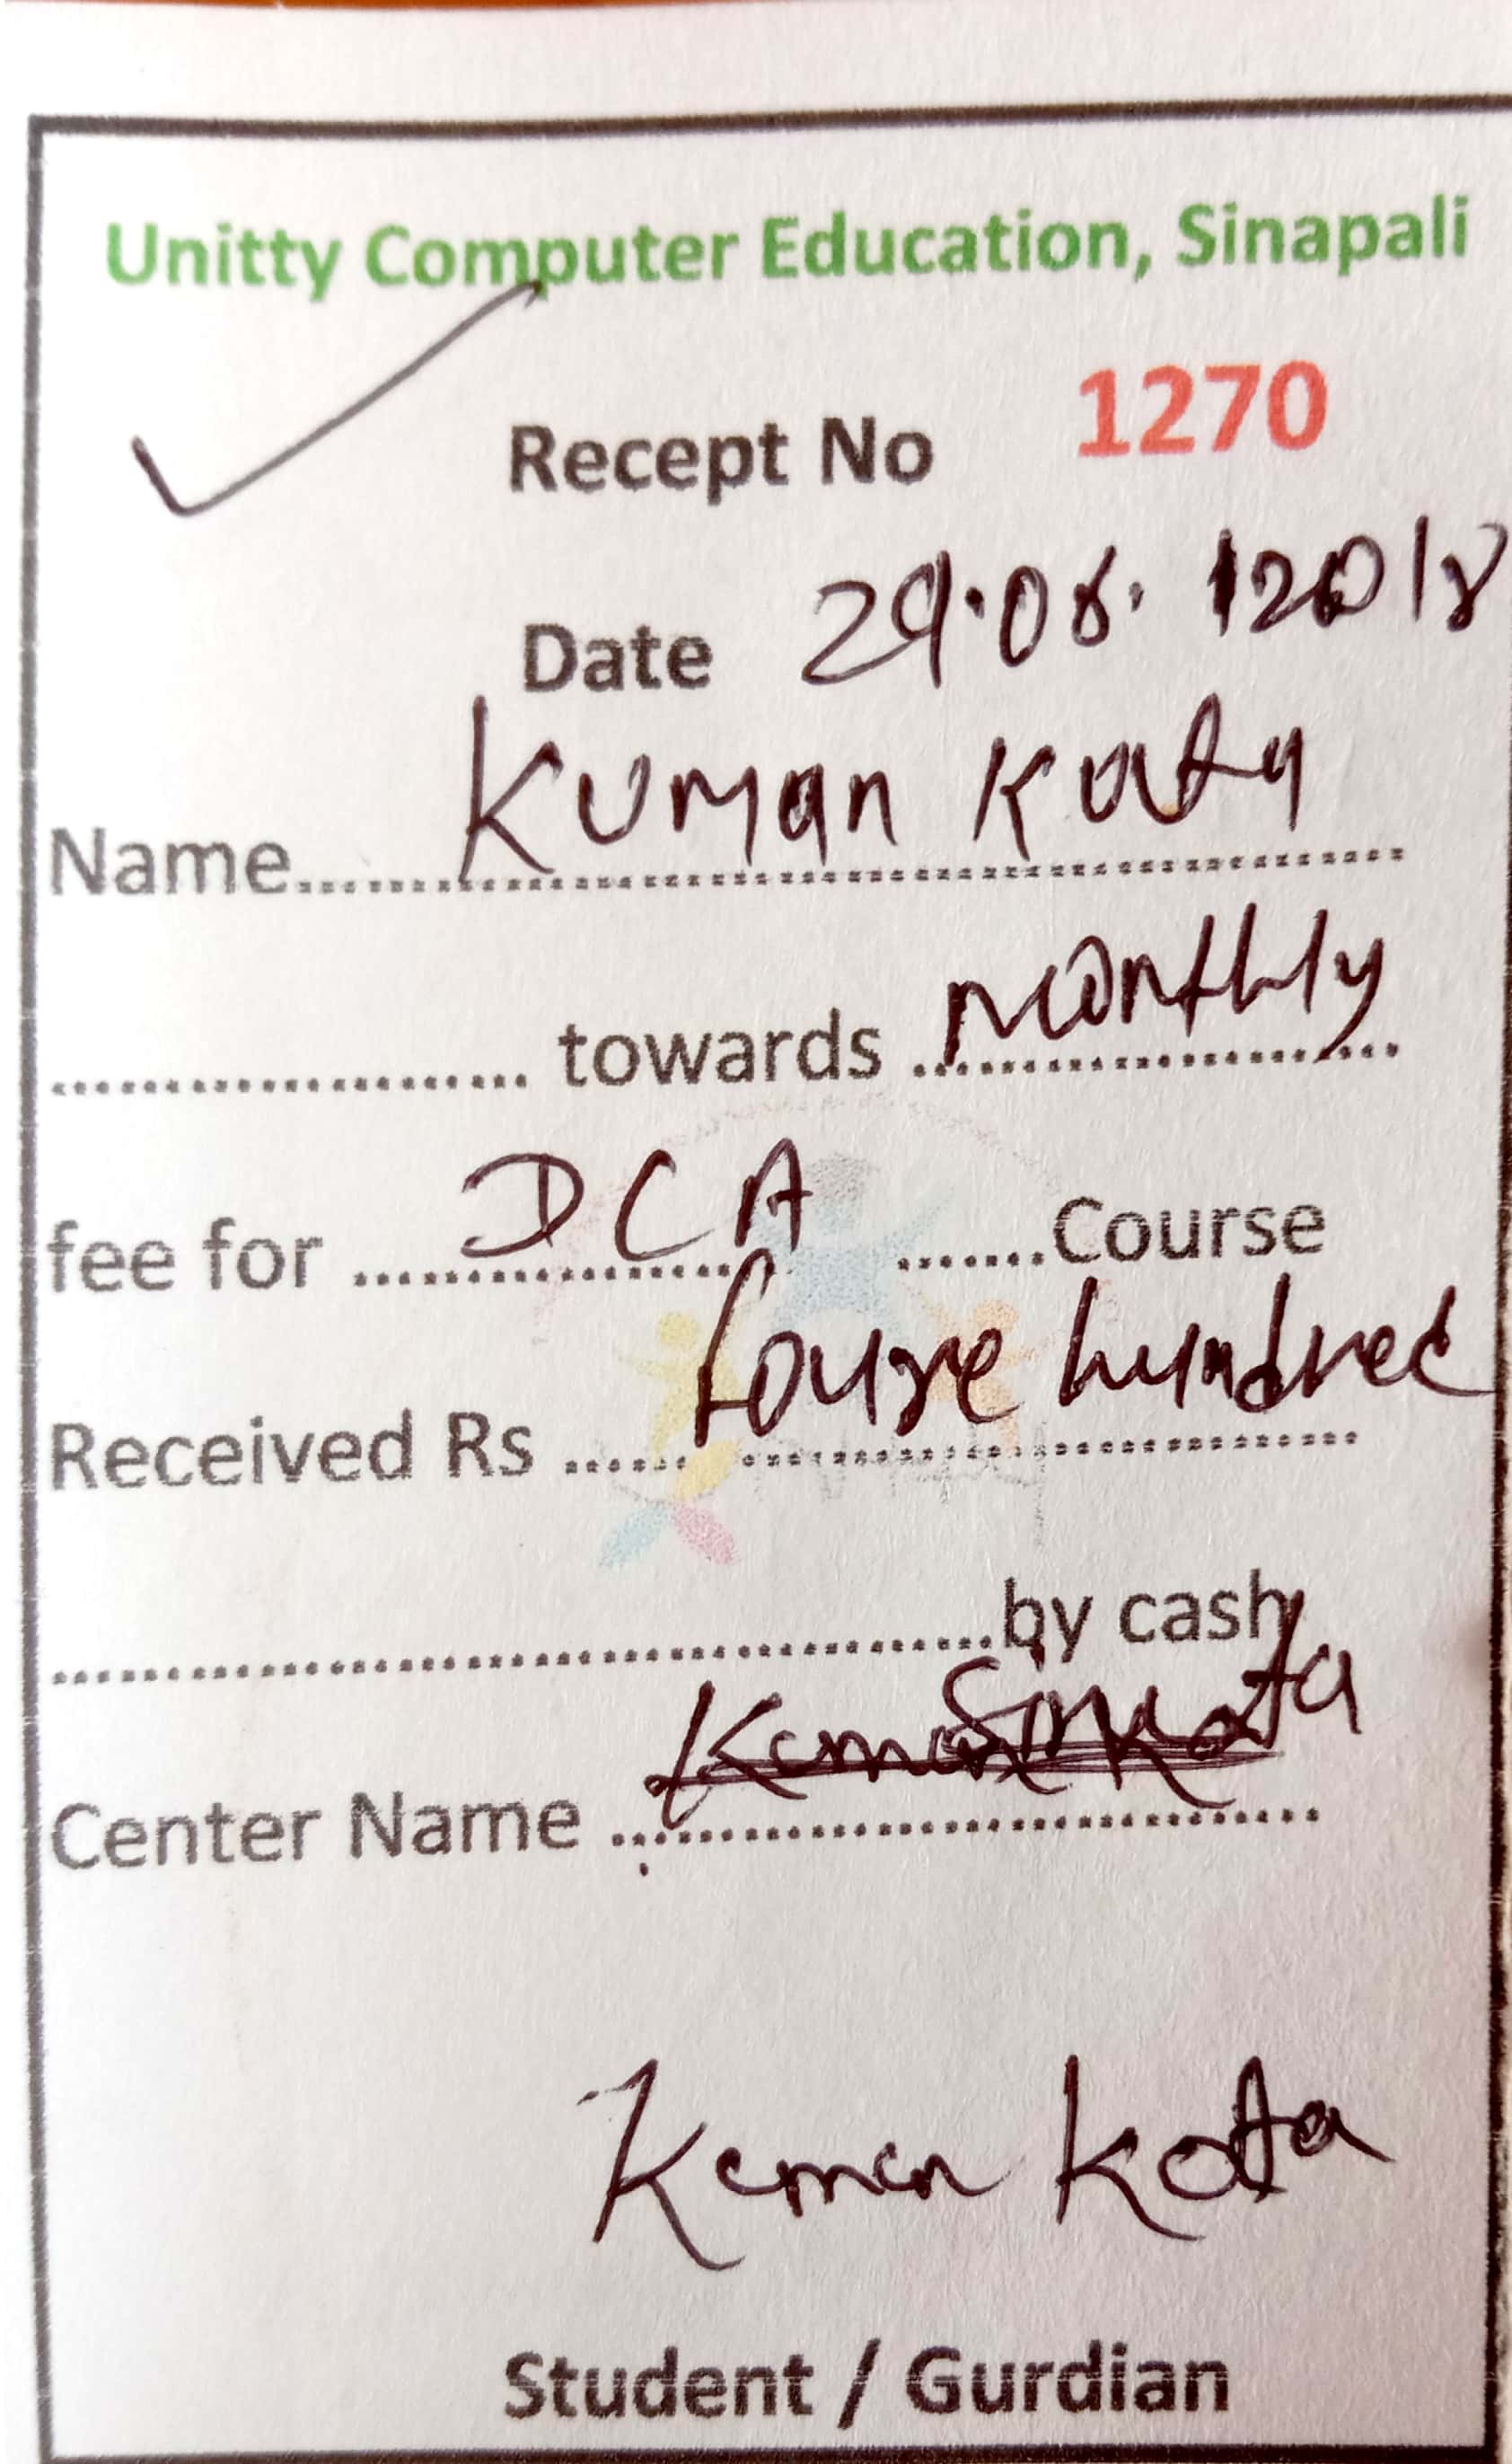 Unitty Computer Education, Sinapali
Recept No 1270
Date 29.08. 2018
Name.......... Kuman Kata
.................... towards Monthly
fee for .......... DCA .......Course
Received Rs ...... foure hundred
..............................by cash
Center Name ..........
Keman Kota
Student / Gurdian